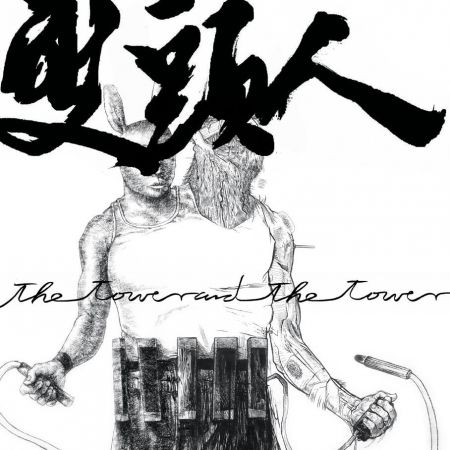 雙頭人
the tower and the tower